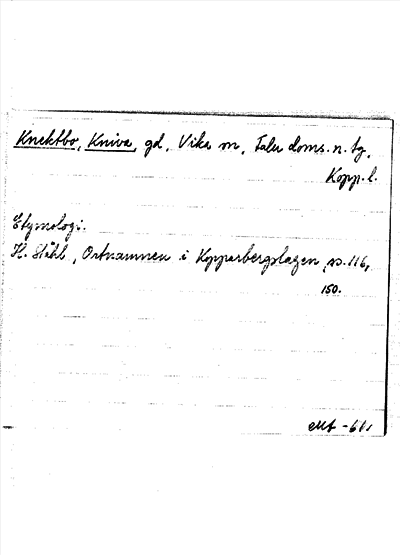 Knektbo, Kniva, gd, Vika sn, Falu doms. n. tg,
Kopp. l.
Etymologi.
H. Ståhl, Ortnamnen i Kopparbergslagen, s. 116,
150.
-61